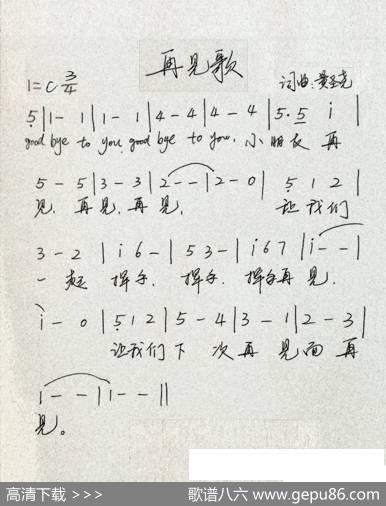 再见歌
1=C 3/4 词曲:
5 | 1 - 1 | 1 - 1 | 4 - 4 | 4 - 4 | 5. 5 i |
good bye to you, good bye to you, 小朋友 再
5 - 5 | 3 - 3 | 2 - - | 2 - 0 | 5 1 2 |
见, 再见, 再见, 让我们
3 - 2 | i 6 - | 5 3 - | i 6 7 | i - - |
一起 挥手, 挥手, 挥手再见,
i - 0 | 5 1 2 | 5 - 4 | 3 - 1 | 2 - 3 |
让我们下 次再见面再
1 - - | 1 - - ||
见。
高清下载 >>> 歌谱八六 www.gepu86.com